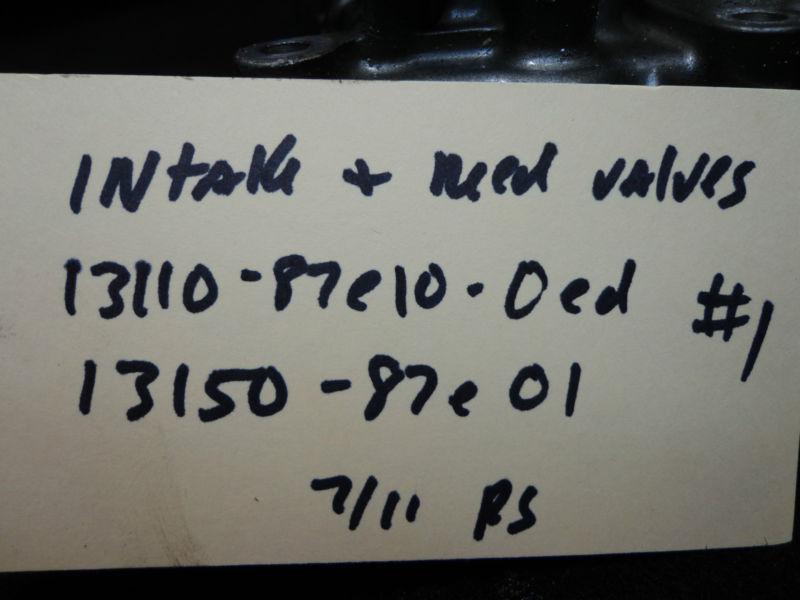 INtaKe + Reed valves
13110-87e10-0ed #1
13150-87e01
7/11 RS